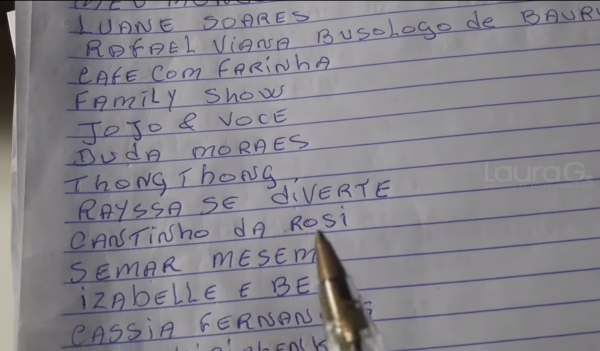 LUANE SOARES
RAFAEL VIANA BUSOLOGO de BAURU
CAFE COM FARINHA
FAMILY SHOW
JOJO & VOCE
DUDA MORAES
THONG THONG
RAYSSA SE diVERTE
CANTINHO DA ROSi
SEMAR MESEM
iZABELLE E BE
CASSiA FERNAN
Laura G.